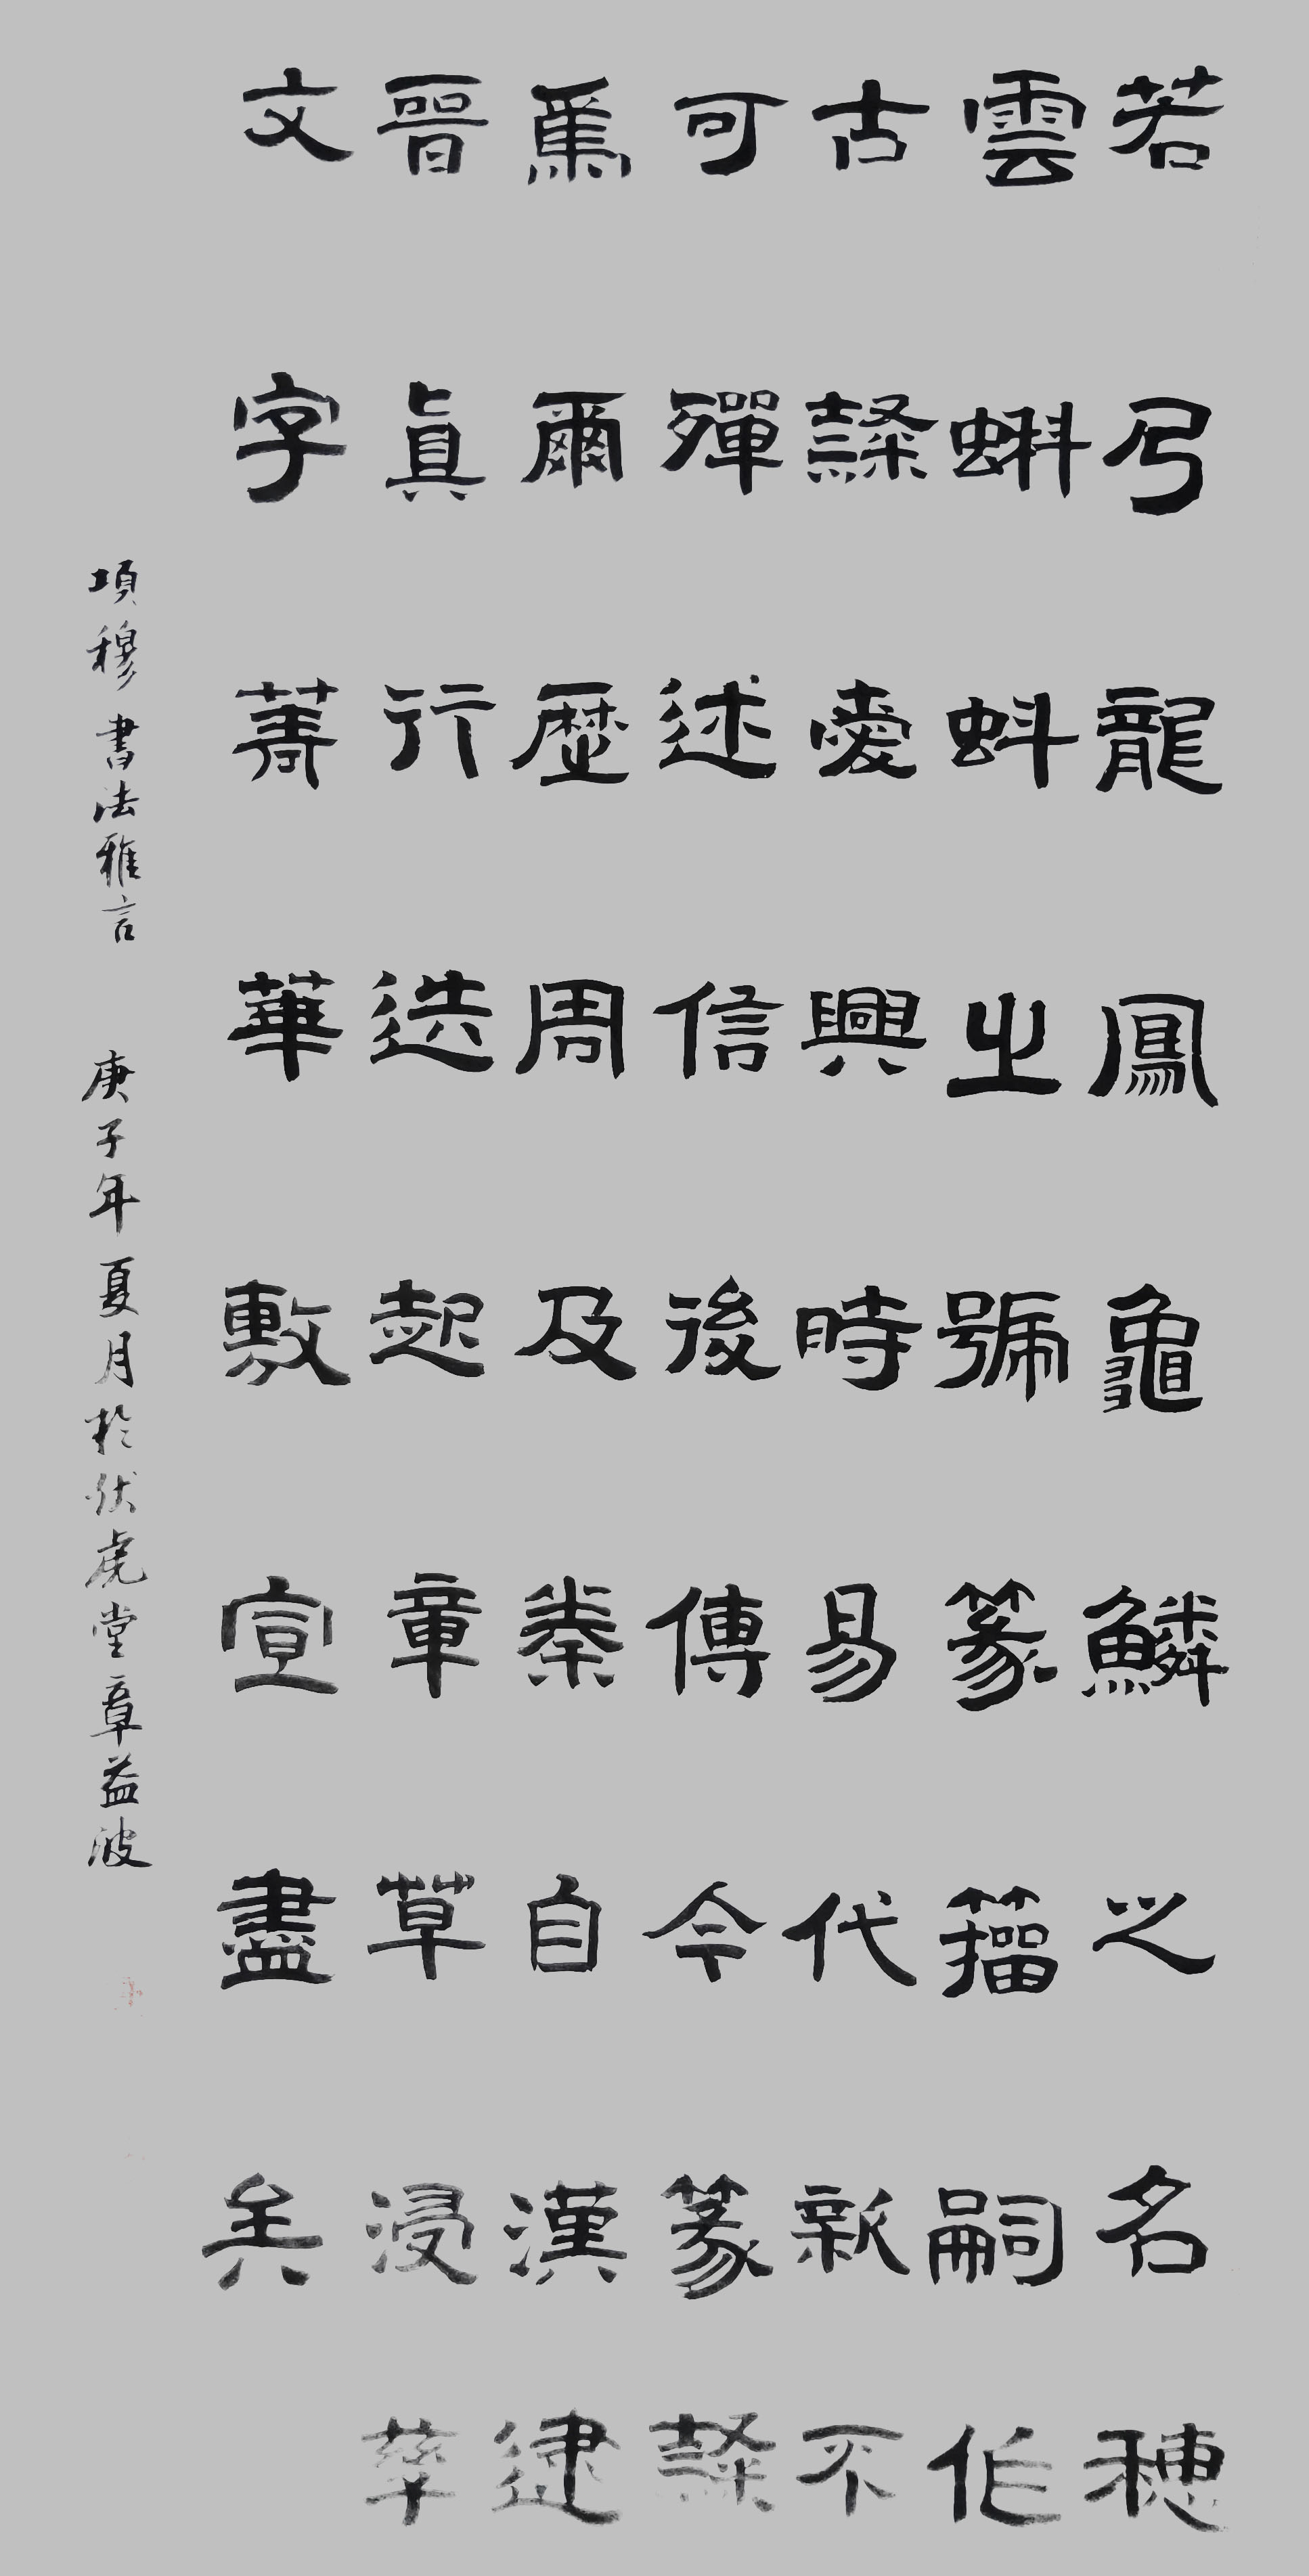 若乃龍鳳龜鱗之名穗
雲蝌蚪之號篆籀嗣作
古隸爰興時易代新不
可殫述信後傳今篆隸
焉爾歷周及秦自漢逮
晉眞行迭起章草浸孳
文字菁華敷宣盡矣
項穆書法雅言 庚子年夏月於伏虎堂章益波